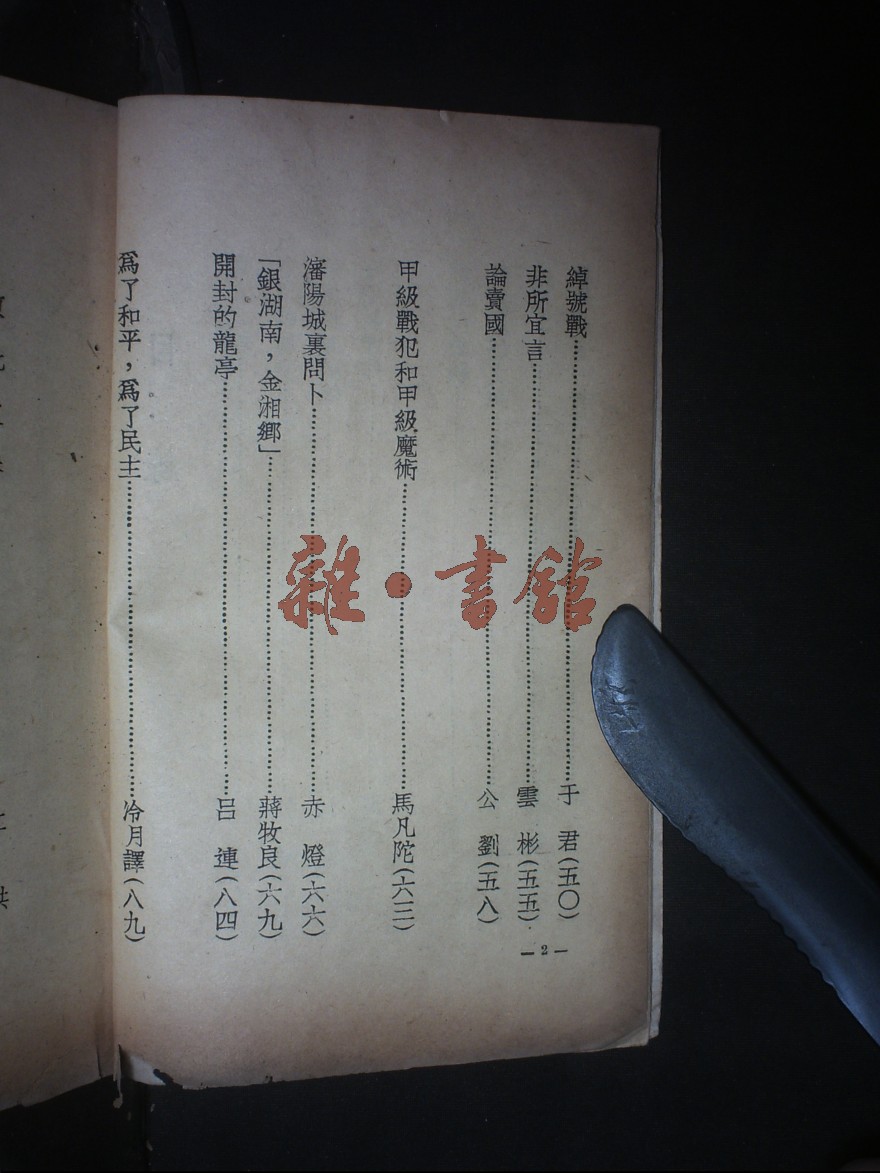 綽號戰……于　君(五〇)
非所宜言……雲　彬(五五)
論賣國……公　劉(五八)
甲級戰犯和甲級魔術……馬凡陀(六三)
瀋陽城裏問卜……赤　燈(六六)
「銀湖南，金湘鄉」……蔣牧良(六九)
開封的龍亭……呂　連(八四)
爲了和平，爲了民主……冷月譯(八九)
— 2 —
雜·書館